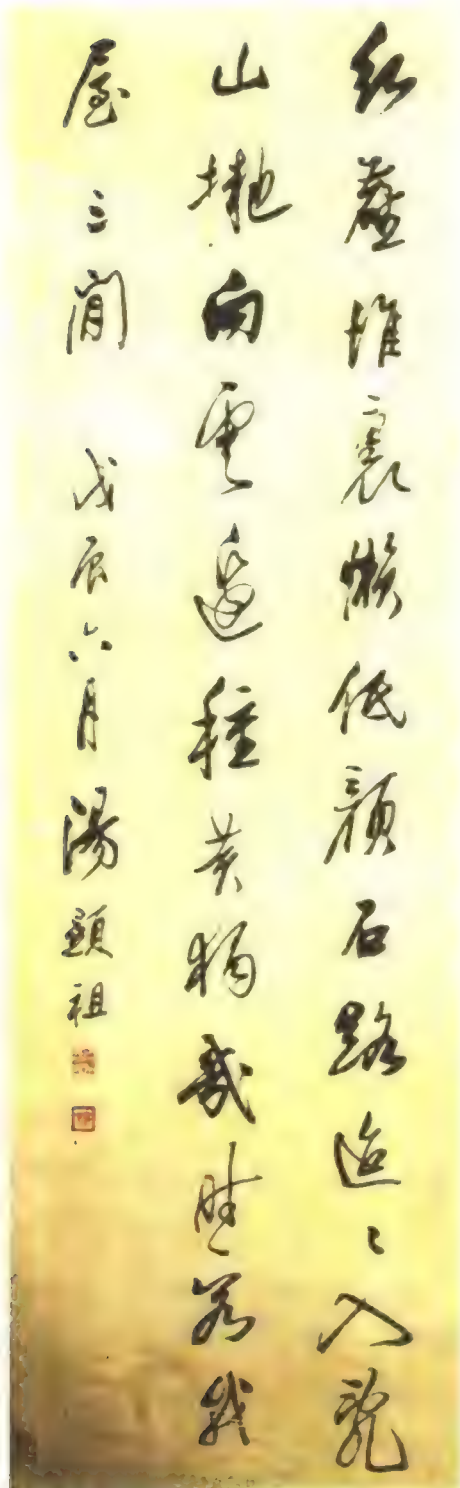 紅塵堆裏懶低顏石路迢〻入亂
山擬向雲邊種黃獨幾時容我
屋三間 戊辰六月湯顯祖